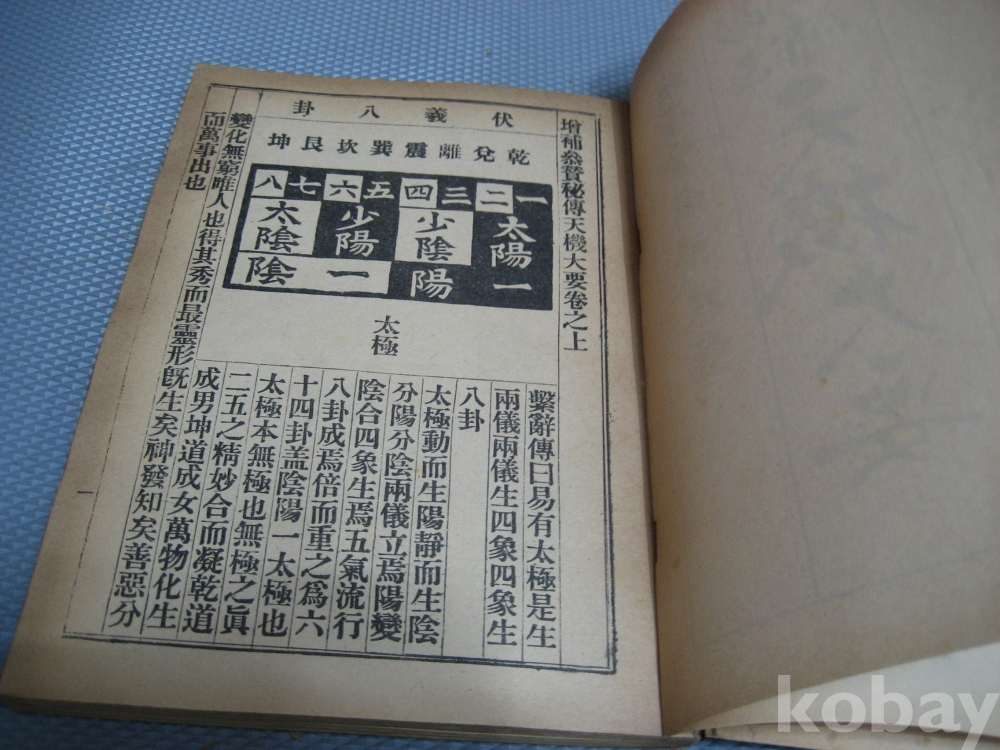 增補叅贊秘傳天機大要卷之上
伏羲八卦
乾兌離震巽坎艮坤
一二三四五六七八
太陽少陰少陽太陰
一陽一陰
太極
繫辭傳曰易有太極是生
兩儀兩儀生四象四象生
八卦
太極動而生陽靜而生陰
分陽分陰兩儀立焉陽變
陰合四象生焉五氣流行
八卦成焉倍而重之爲六
十四卦盖陰陽一太極也
太極本無極也無極之眞
二五之精妙合而凝乾道
成男坤道成女萬物化生
變化無窮唯人也得其秀而最靈形旣生矣神發知矣善惡分
而萬事出也
一
kobay